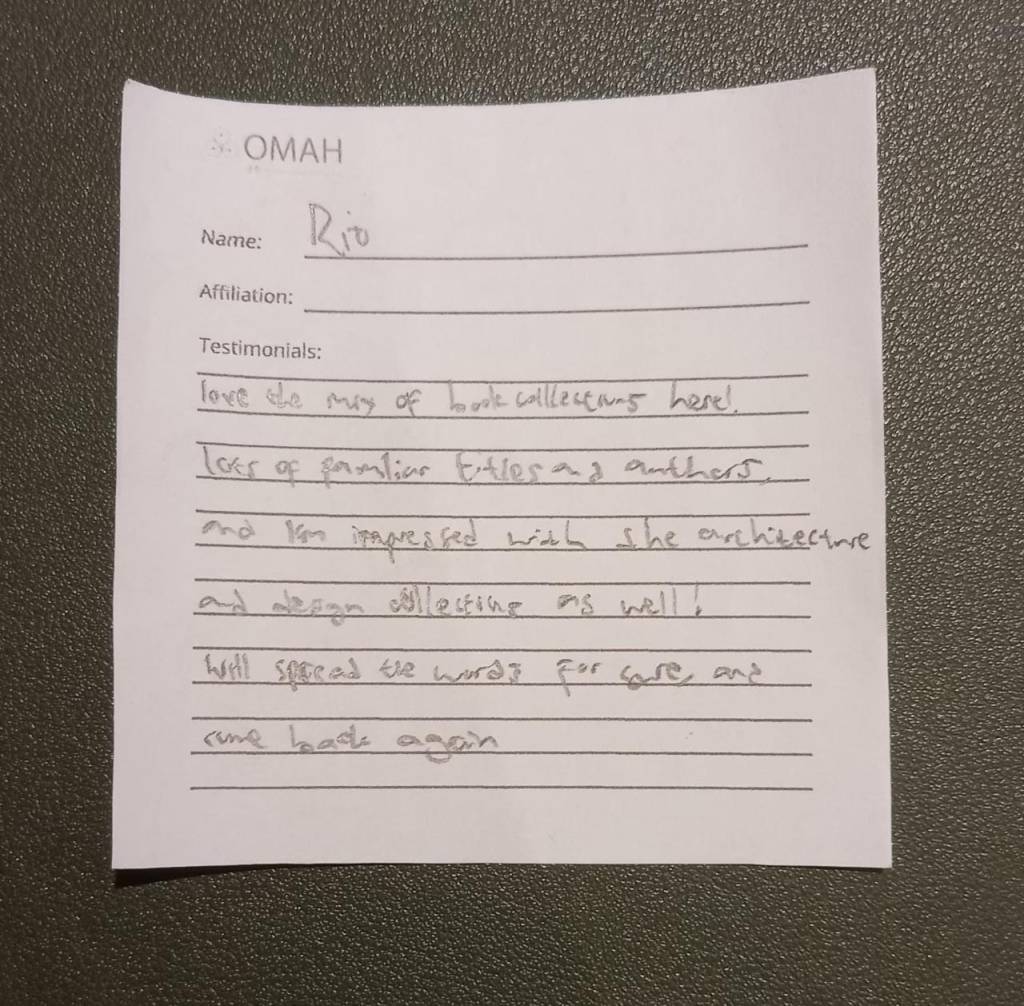 OMAH
Name: Rio
Affiliation:
Testimonials:
love the mix of book collections here!
lots of familiar titles and authors,
and I'm impressed with the architecture
and design collecting as well!
Will spread the words for sure, and
come back again